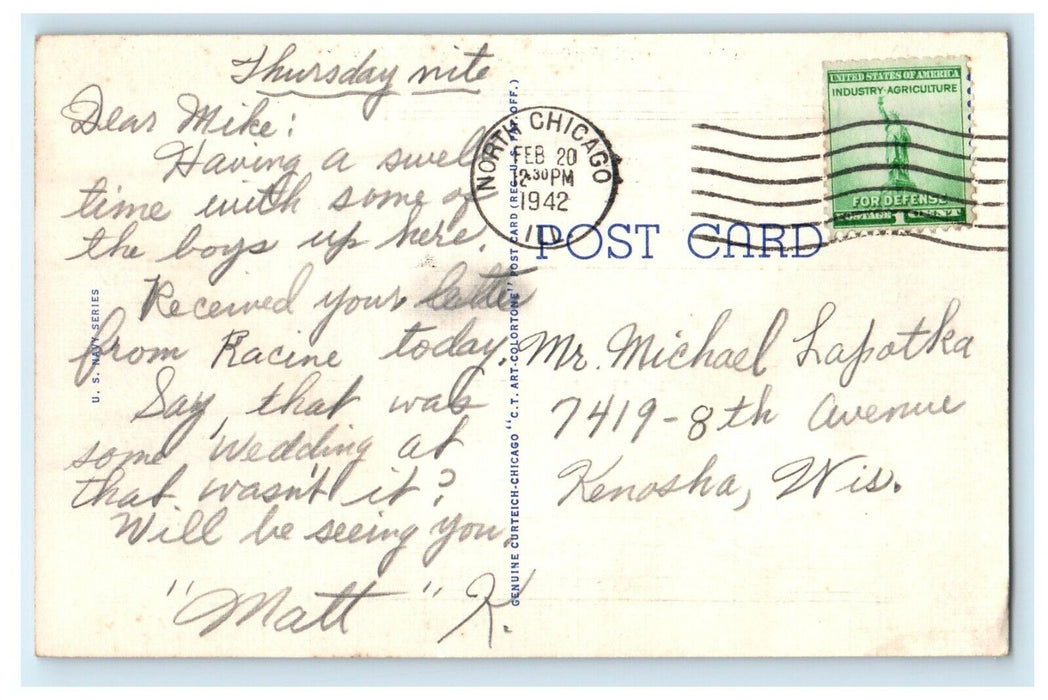 Thursday nite
Dear Mike:
Having a swell
time with some of
the boys up here.
Received your letter
from Racine today.
Say, that was
some Wedding at
that wasn't it?
Will be seeing you,
"Matt" K.
U. S. NAVY SERIES
GENUINE CURTEICH-CHICAGO "C.T. ART-COLORTONE" POST CARD (REG. U.S. PAT. OFF.)
NORTH CHICAGO
FEB 20
2 30 PM
1942
ILL
UNITED STATES OF AMERICA
INDUSTRY·AGRICULTURE
FOR DEFENSE
POSTAGE 1 CENT
POST CARD
Mr. Michael Lapotka
7419-8th Avenue
Kenosha, Wis.